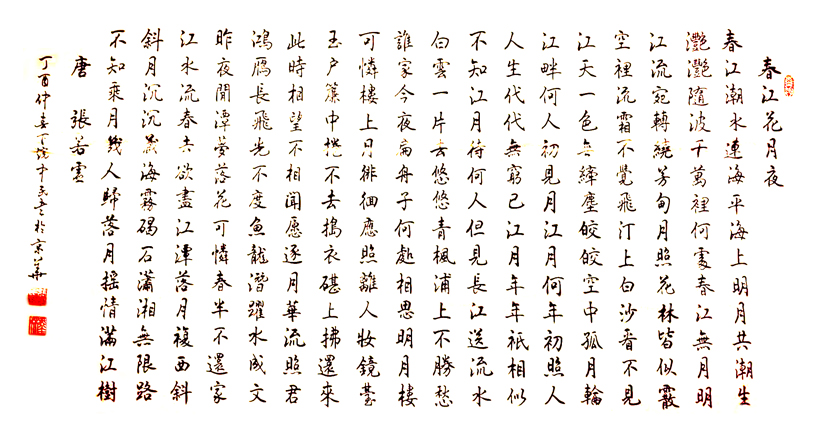 春江花月夜
春江潮水連海平海上明月共潮生
灧灧隨波千萬裡何處春江無月明
江流宛轉繞芳甸月照花林皆似霰
空裡流霜不覺飛汀上白沙看不見
江天一色無纖塵皎皎空中孤月輪
江畔何人初見月江月何年初照人
人生代代無窮已江月年年祇相似
不知江月待何人但見長江送流水
白雲一片去悠悠青楓浦上不勝愁
誰家今夜扁舟子何處相思明月樓
可憐樓上月徘徊應照離人妝鏡臺
玉戶簾中捲不去搗衣碪上拂還來
此時相望不相聞愿逐月華流照君
鴻鴈長飛光不度魚龍潛躍水成文
昨夜閒潭夢落花可憐春半不還家
江水流春去欲盡江潭落月複西斜
斜月沉沉藏海霧碣石瀟湘無限路
不知乘月幾人歸落月搖情滿江樹
唐 張若虛
丁酉仲春 於京華